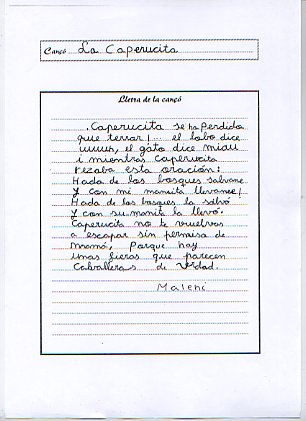 Cançó La Caperucita
Lletra de la cançó
.Caperucita se ha perdido
que terror!... el lobo dice
uuuuh, el gato dice miau
i mientras Caperucita
rezaba esta oración:
Hada de los bosques salvame
Y con mi mamita llevame!
Hada de los bosques la salvó
Y con su manita la llevó.
Caperucita no te vuelvas
a escapar sin permiso de
mamá, Porque hay
unas fieras que parecen
Caballeros de Verdad.
Maleni